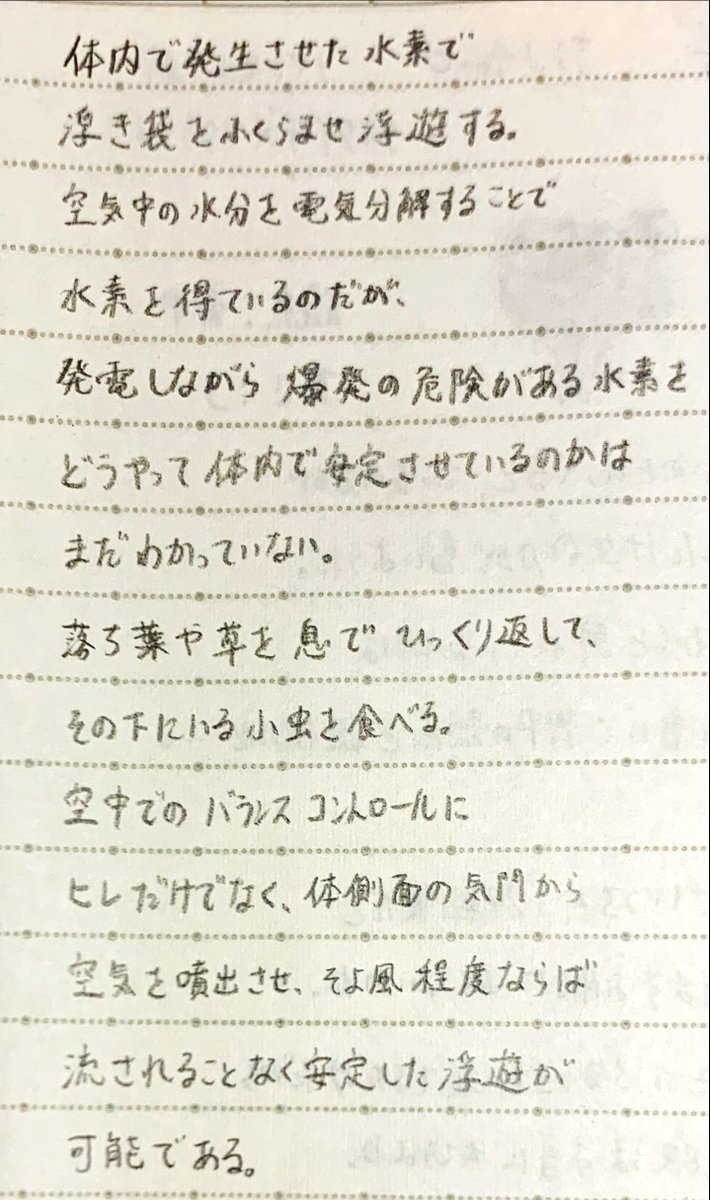 体内で発生させた水素で
浮き袋をふくらませ浮遊する。
空気中の水分を電気分解することで
水素を得ているのだが、
発電しながら爆発の危険がある水素を
どうやって体内で安定させているのかは
まだわかっていない。
落ち葉や草を息でひっくり返して、
その下にいる小虫を食べる。
空中でのバランスコントロールに
ヒレだけでなく、体側面の気門から
空気を噴出させ、そよ風程度ならば
流されることなく安定した浮遊が
可能である。